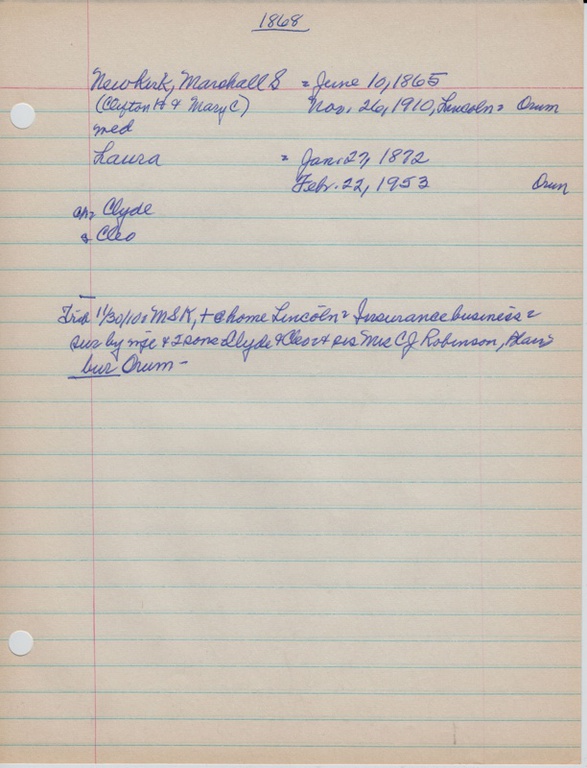 1868
Newkirk, Marshall S = June 10, 1865
(Clifton H & Mary C) Nov. 26, 1910, Lincoln = Orum
med
Laura = Jan. 27, 1872
Feb. 22, 1953 Orum
ch = Clyde
& Cleo
Trib 11/30/10: M S K, + @ home Lincoln = Insurance business =
sur by wife & 2 sons Clyde & Cleo & sis Mrs C J Robinson, Blair
bur Orum -